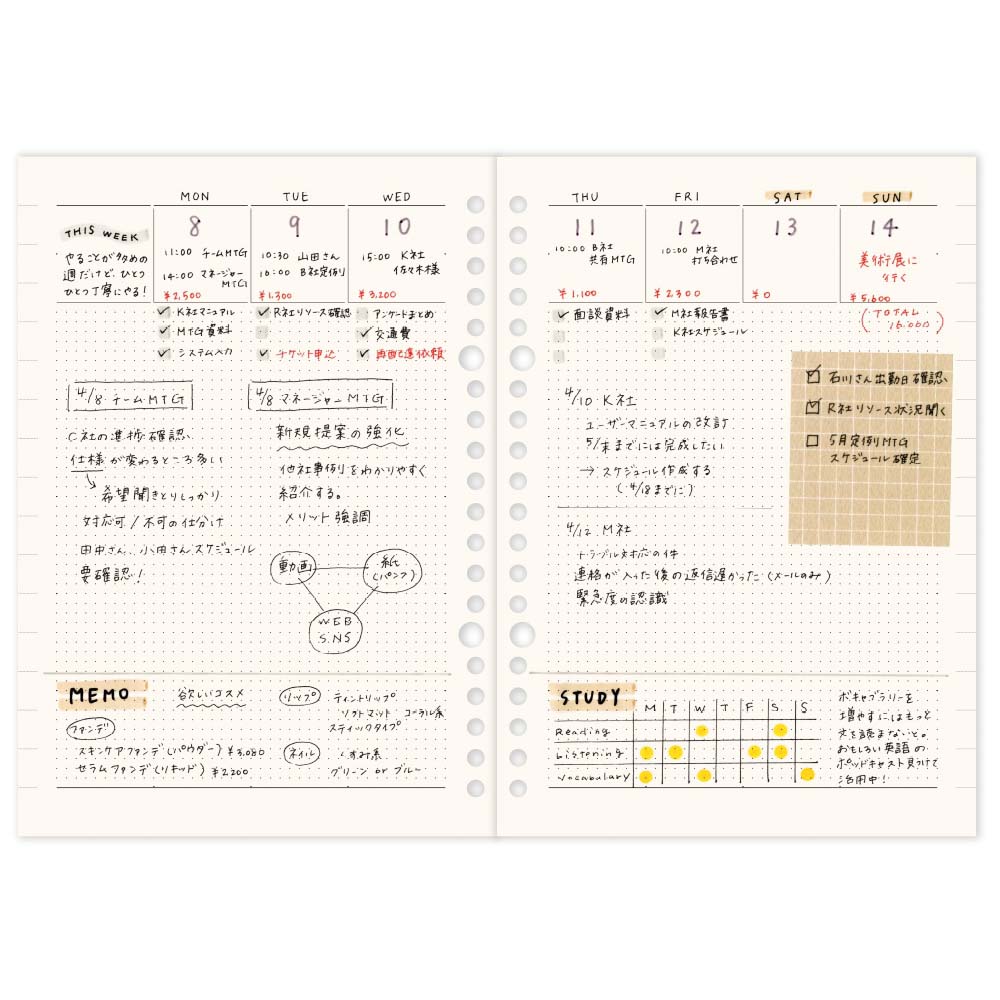 MON
TUE
WED
THIS WEEK
やることが多めの
週だけど、ひとつ
ひとつ丁寧にやる!
8
11:00 チームMTG
14:00 マネージャー
MTG
¥2,500
9
10:30 山田さん
16:00 B社定例
¥1,300
10
15:00 K社
佐々木様
¥3,200
K社マニュアル
MTG資料
システム入力
R社リソース確認
チケット申込
アンケートまとめ
交通費
再配達依頼
4/8 チームMTG
C社の進捗確認、
仕様が変わるところ多い
希望聞きとりしっかり
対応可/不可の仕分け
田中さん、小田さんスケジュール
要確認!
4/8 マネージャーMTG
新規提案の強化
他社事例をわかりやすく
紹介する。
メリット強調
動画
紙
(パンフ)
WEB
SNS
MEMO
欲しいコスメ
ファンデ
スキンケアファンデ(パウダー) ¥3,080
セラムファンデ(リキッド) ¥2200
リップ
ティントリップ
ソフトマット コーラル系
スティックタイプ
ネイル
くすみ系
グリーン or ブルー
THU
FRI
SAT
SUN
11
10:00 B社
共有MTG
¥1,100
12
10:00 M社
打ち合わせ
¥2300
13
¥0
14
美術展に
行く
¥5,600
(TOTAL
16.000)
面談資料
M社報告書
K社スケジュール
石川さん出勤日確認、
R社リソース状況聞く
5月定例MTG
スケジュール確定
4/10 K社
ユーザーマニュアルの改訂
5/末までには完成したい
→ スケジュール作成する
(4/18までに)
4/12 M社
トラブル対応の件
連絡が入った後の返信遅かった(メールのみ)
緊急度の認識
STUDY
M T W T F S S
Reading
Listening
Vocabulary
ボキャブラリーを
増やすにはもっと
文を読まないと。
おもしろい英語の
ポッドキャスト見つけて
活用中!